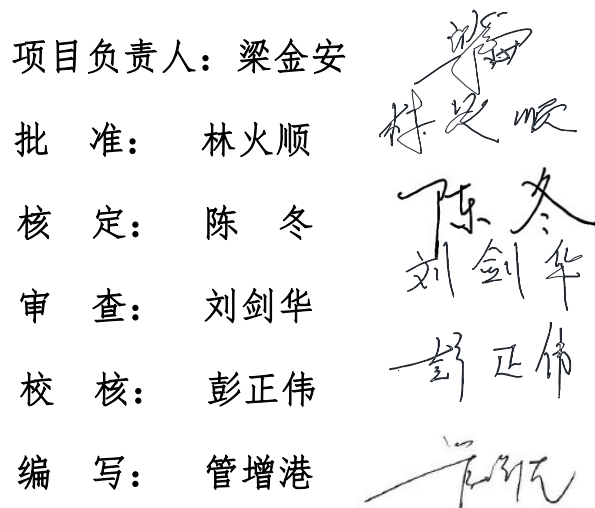 项目负责人：梁金安
批 准： 林火顺 林火顺
核 定： 陈 冬 陈冬
审 查： 刘剑华 刘剑华
校 核： 彭正伟 彭正伟
编 写： 管增港